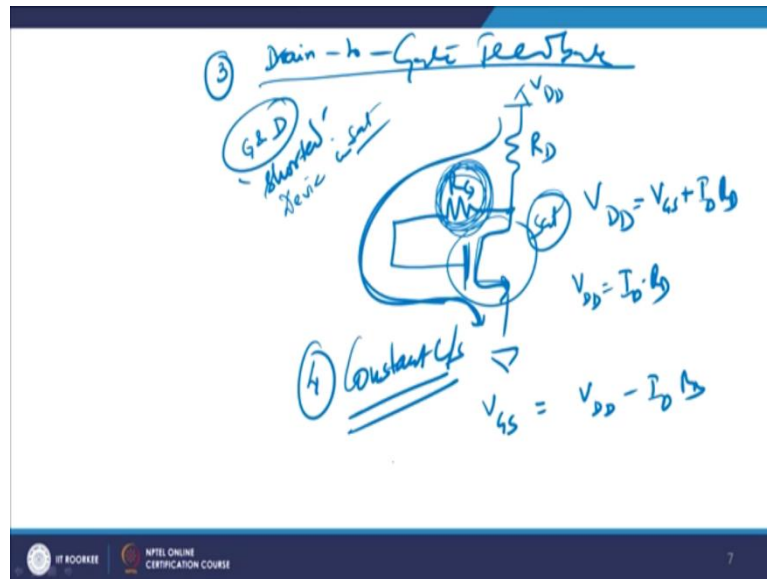 ③ Drain-to-Gate Feedback
G&D
"Shorted"
Device sat
V_DD
R_D
R_G
sat
V_DD = V_GS + I_D R_D
V_DD = I_D · R_D
④ Constant C/S
V_GS = V_DD - I_D R_D
IIT ROORKEE
NPTEL ONLINE
CERTIFICATION COURSE
7